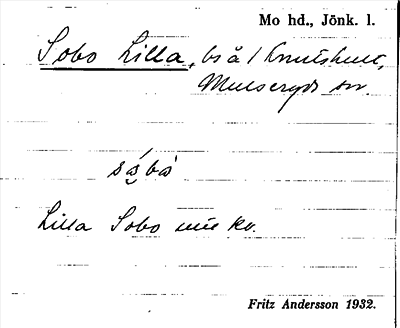 Mo hd., Jönk. l.
Sobo Lilla, bs å 1 Knutshult,
Mulseryds sn.
såbo
Lilla Sobo
Fritz Andersson 1932.